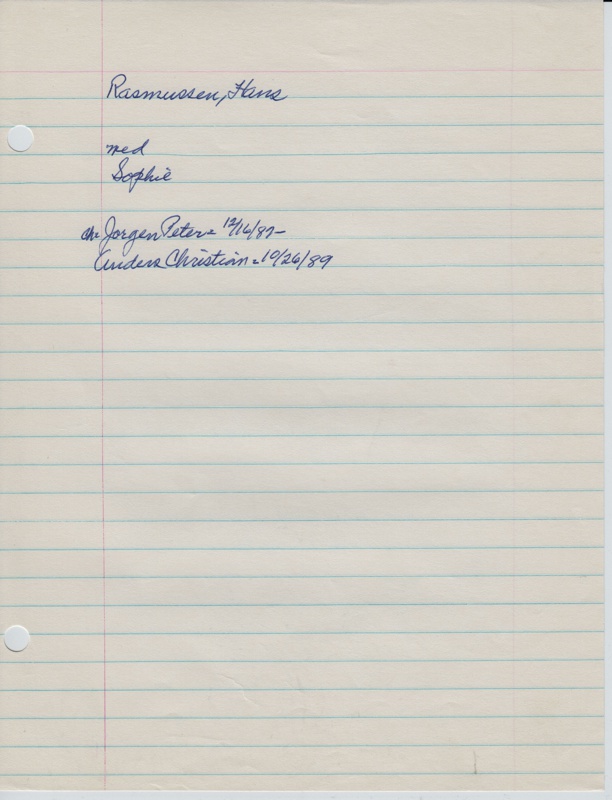 Rasmussen, Hans
med
Sophie
ch. Jorgen Peter = 12/16/87-
Anders Christian = 10/26/89